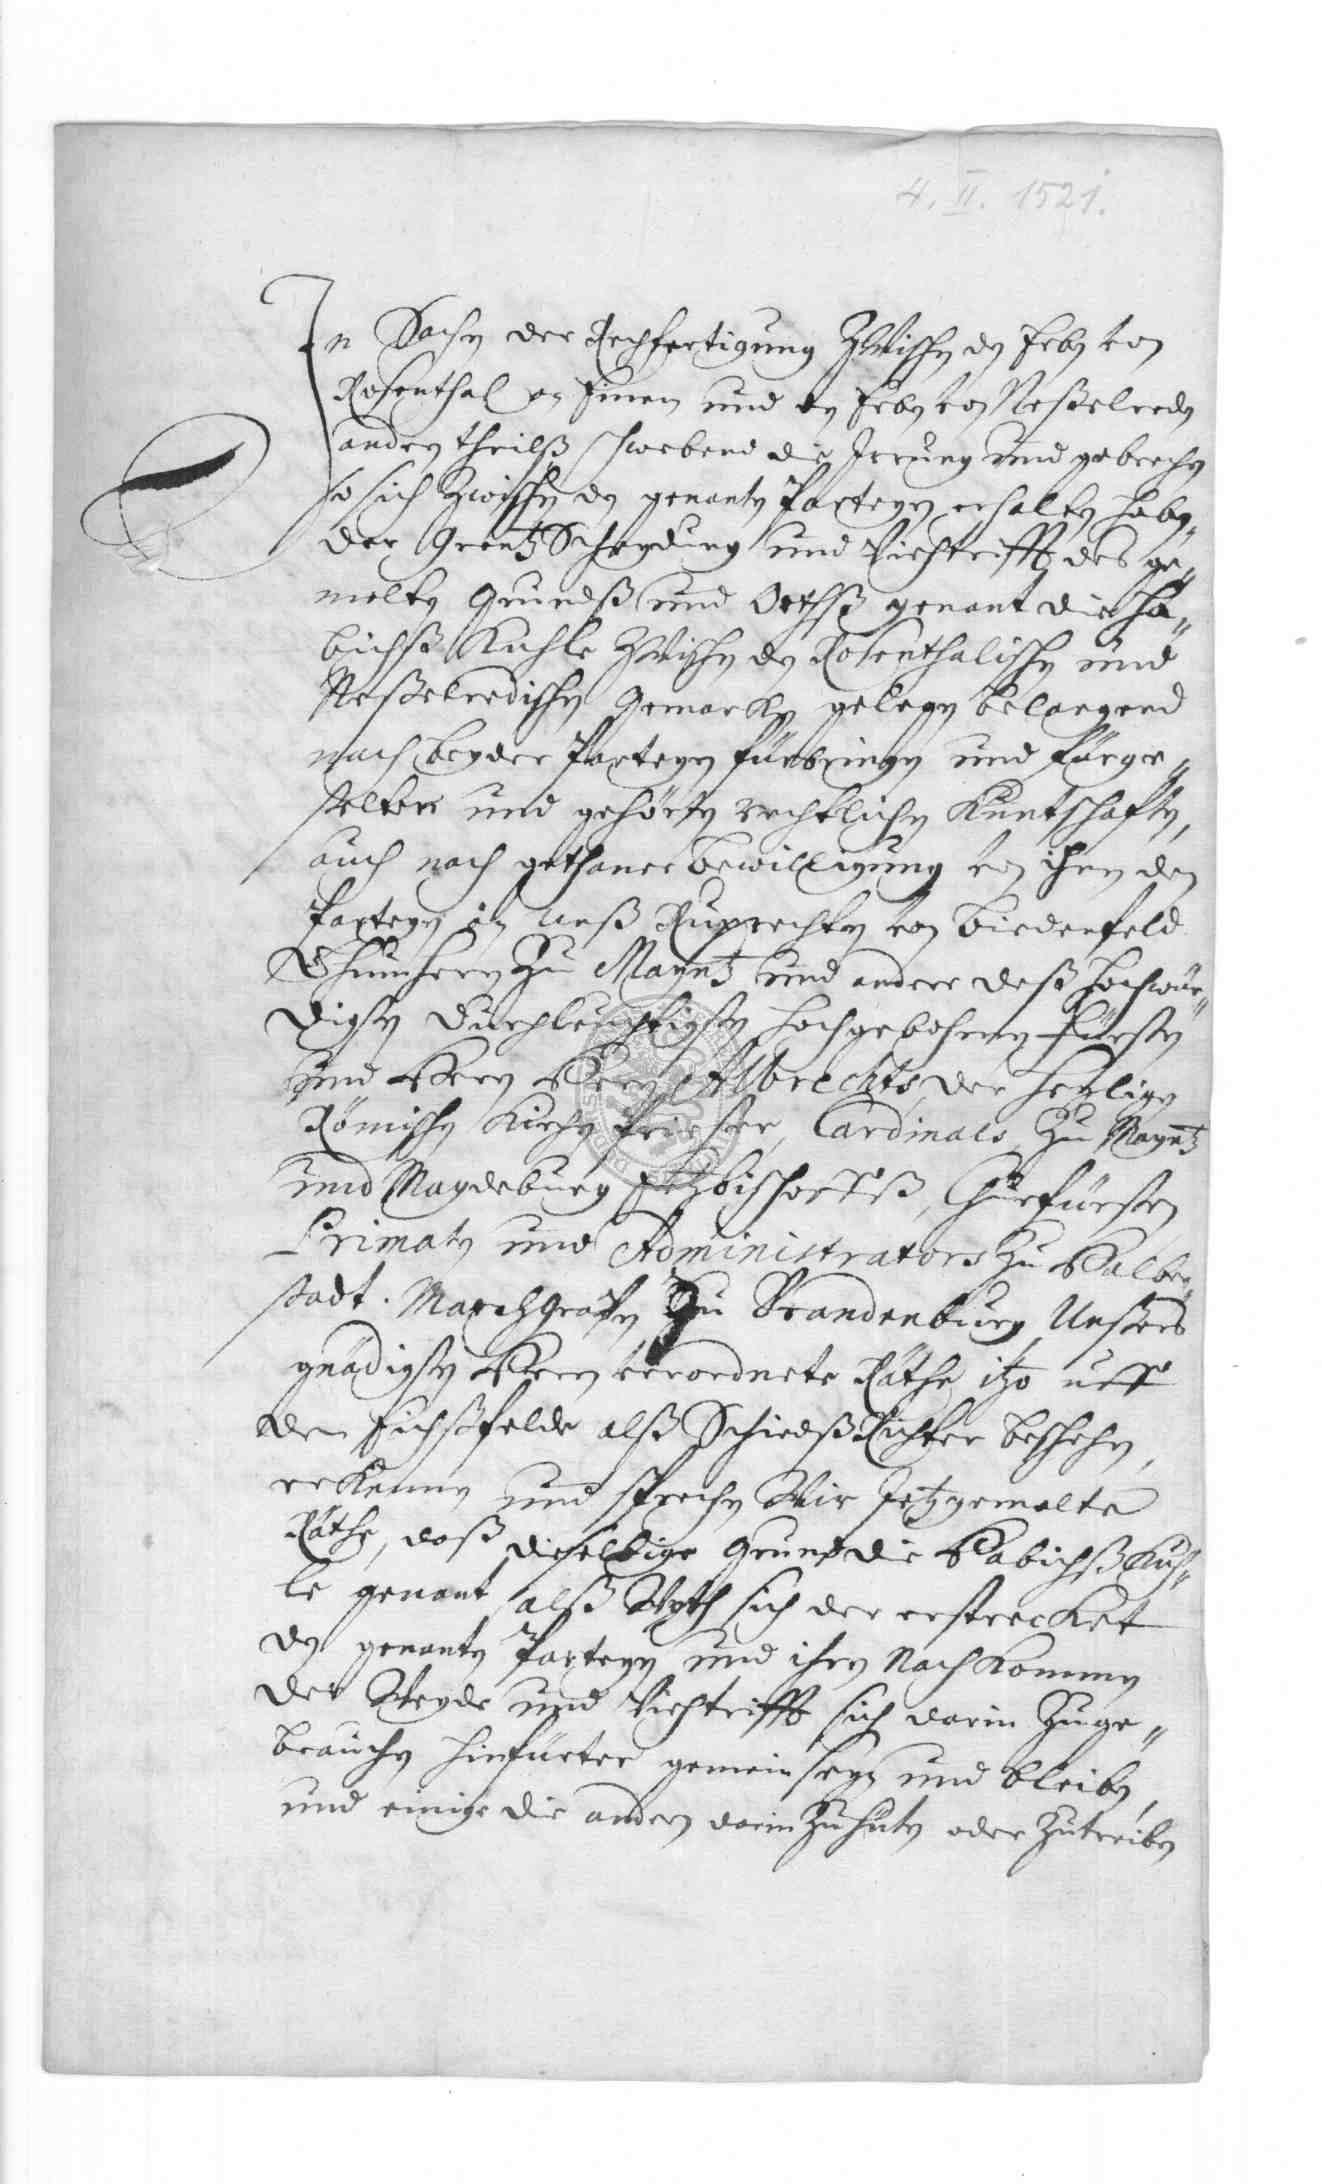 4. II. 1521.
In Sachen der Rechfertigung Zwischen den Erben von
Rosenthal an Einen und den Erben von Neßelreden
andern theilß schwebend die Irrung und gebrechen
so sich zwischen den genanten Parteyen erhalten haben,
der Grentz Scheydung und Viehtrifft des ge„
melten Grundß und Orthß genant die Ha„
bichß Kuhle Zwischen den Rosenthalischen und
Neßelredischen Gemarken gelegen belangend
nach beyder Parteyen fürbringen und fürge„
stelter und gehörten rechtlichen Kuntschafften,
auch nach gethaner bewilligung von ihnen den
Parteyen in unß Ruprechten von Biedenfeld
Thumherrn Zu Mayntz und andere deß hochwür„
digsten Durchleuchtigsten hochgebohrnen Fürsten
und Herrn Herrn Albrechts, der heyligen
Römischen Kirchen Priester, Cardinals, Zu Mayntz
und Magdeburg Ertzbischoffß, Churfürsten
Primaten und Administrators Zu Halber„
stadt. Marchgrafen Zu Brandenburg Unsers
gnädigsten Herrn verordnete Räthe itzo uff
den Eichßfelde alß Schiedß Richter beschehen,
erkennen und sprechen Wir Jetzgemelte
Räthe, daß dieselbige Grund die Habichß Kuh„
le genant alß Weyth sich der erstrecket
den genanten Parteyen und ihren Nachkommen
der Weyde und Viehtrifft sich darin Zuge„
brauchen hinfürter gemein seyn und bleiben,
und einige die andern darin Zuhüten oder Zutreiben